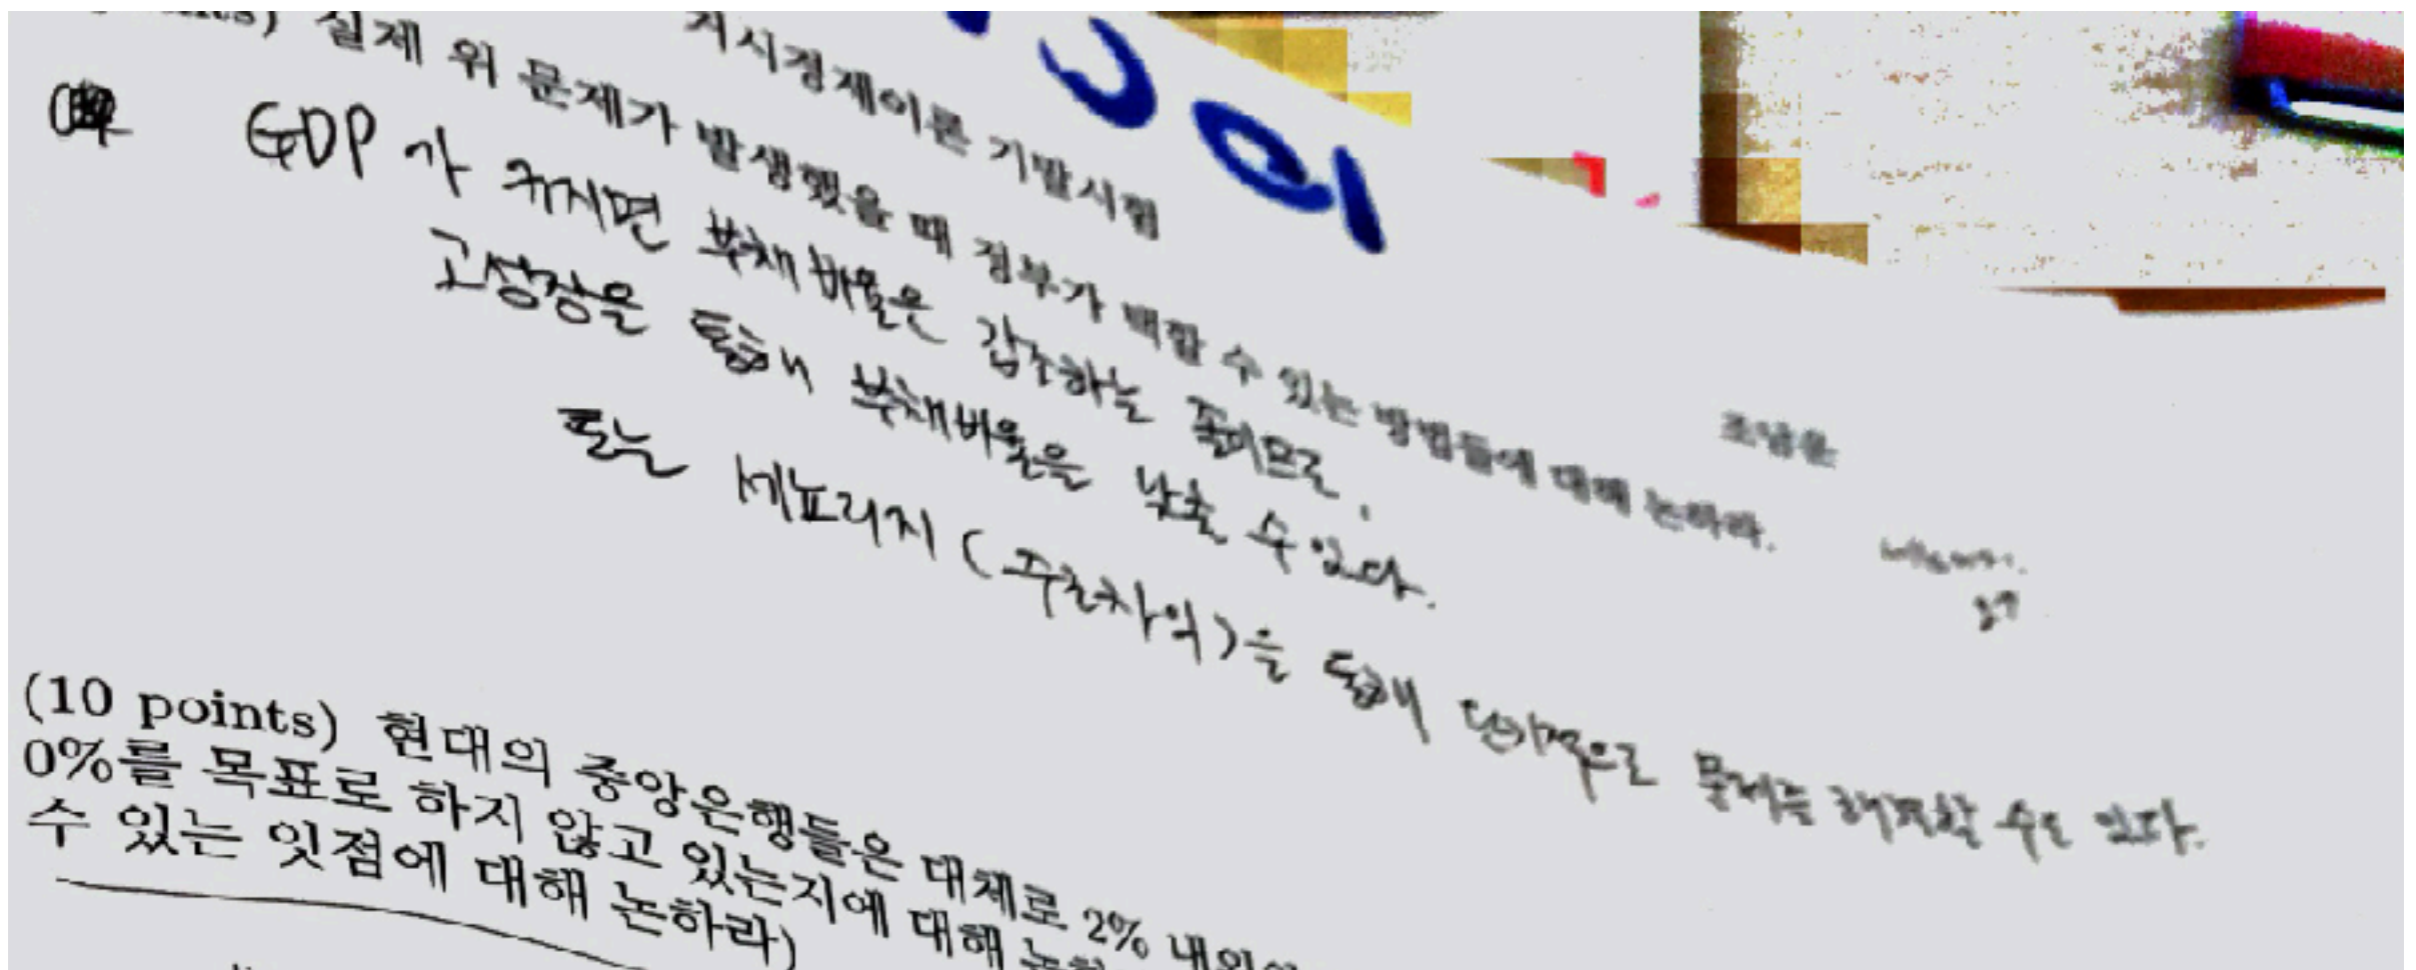 거시경제이론 기말시험
조남운
실제 위 문제가 발생했을 때 정부가 택할 수 있는 방법들에 대해 논하라.
GDP가 커지면 부채비율은 감소하는 꼴이므로,
고성장을 통해 부채비율을 낮출 수 있다.
또는 세뇨리지 (주조차익)을 통해 단기적으로 문제를 해결할 수도 있다.
(10 points) 현대의 중앙은행들은 대체로 2% 내외의
0%를 목표로 하지 않고 있는지에 대해
수 있는 잇점에 대해 논하라)